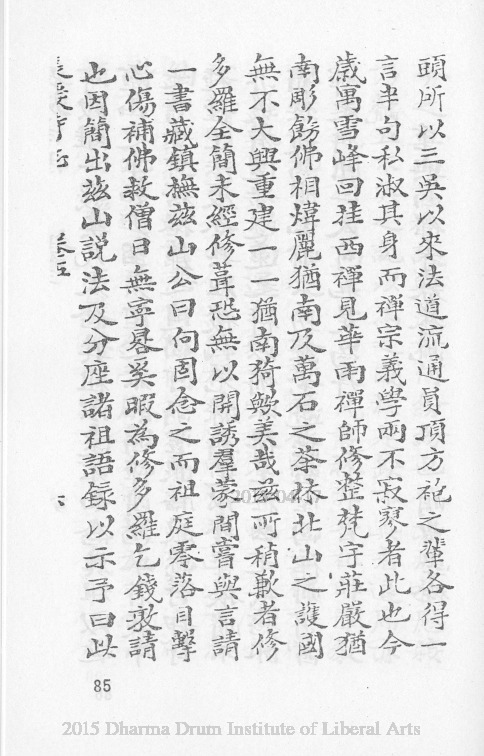 頭所以三吳以來法道流通員頂方袍之輩各得一
言半句私淑其身而禪宗義學兩不寂寥者此也今
歲寓雪峰回挂西禪見華雨禪師修整梵宇莊嚴猶
南彫餙佛相煒麗猶南及萬石之茶林北山之護國
無不大興重建一一猶南猗歟美哉茲所稍歉者修
多羅全簡未經修葺恐無以開誘羣蒙間嘗與言請
一書藏鎮撫茲山公曰向固念之而祖庭零落目擊
心傷補佛救僧日無寧晷奚暇為修多羅乞錢衮請
也因簡出茲山說法及分座諸祖語録以示予曰此
卷五
六
85
2015 Dharma Drum Institute of Liberal Arts